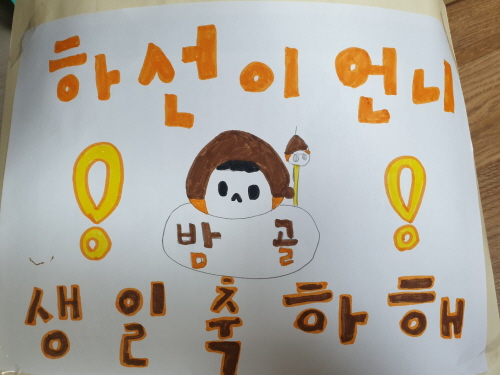 하선이 언니
! !
밤 골
생일축하해